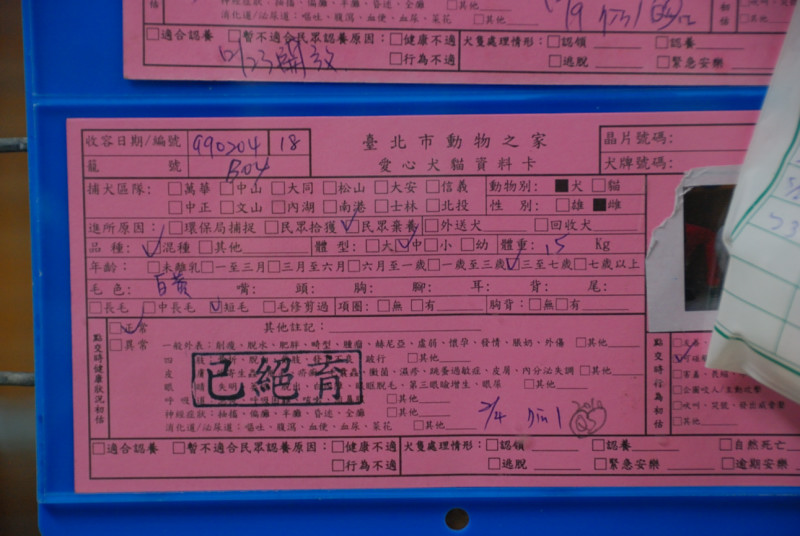 消化道/泌尿道：嘔吐、腹瀉、血便、血尿、菜花 □其他
□適合認養 □暫不適合民眾認養原因：□健康不適 犬隻處理情形：□認領 □認養
□行為不適 □逃脫 □緊急安樂
收容日期/編號 990204 18 臺北市動物之家 晶片號碼：
籠 號 B04 愛心犬貓資料卡 犬牌號碼：
捕犬區隊：□萬華 □中山 □大同 □松山 □大安 □信義 動物別：■犬 □貓
□中正 □文山 □內湖 □南港 □士林 □北投 性 別：□雄 ■雌
進所原因：□環保局捕捉 □民眾拾獲 ☑民眾棄養 □外送犬 □回收犬
品種：☑混種 □其他 體型：□大 ☑中 □小 □幼 體重：15 Kg
年齡：□未離乳 □一至三月 □三月至六月 □六月至一歲 □一歲至三歲 ☑三至七歲 □七歲以上
毛色：白黃 嘴： 頭： 胸： 腳： 耳： 背： 尾：
□長毛 □中長毛 ☑短毛 □毛修剪過 項圈：□無 □有 胸背：□無 □有
點交時健康狀況初估
☑正常 其他註記：
□異常 一般外表：削瘦、脫水、肥胖、畸型、腫瘤、赫尼亞、虛弱、懷孕、發情、脹奶、外傷 □其他
跛行 □其他
濕疹、跳蚤過敏症、皮屑、內分泌失調 □其他
眼瞼脫毛、第三眼瞼增生、眼屎 □其他
□其他
神經症狀：抽搐、偏癱、半癱、昏迷、全癱 □其他
消化道/泌尿道：嘔吐、腹瀉、血便、血尿、菜花 □其他
已絕育
2/4
點交時行為初估
□其他
□適合認養 □暫不適合民眾認養原因：□健康不適 犬隻處理情形：□認領 □認養 □自然死亡
□行為不適 □逃脫 □緊急安樂 □逾期安樂